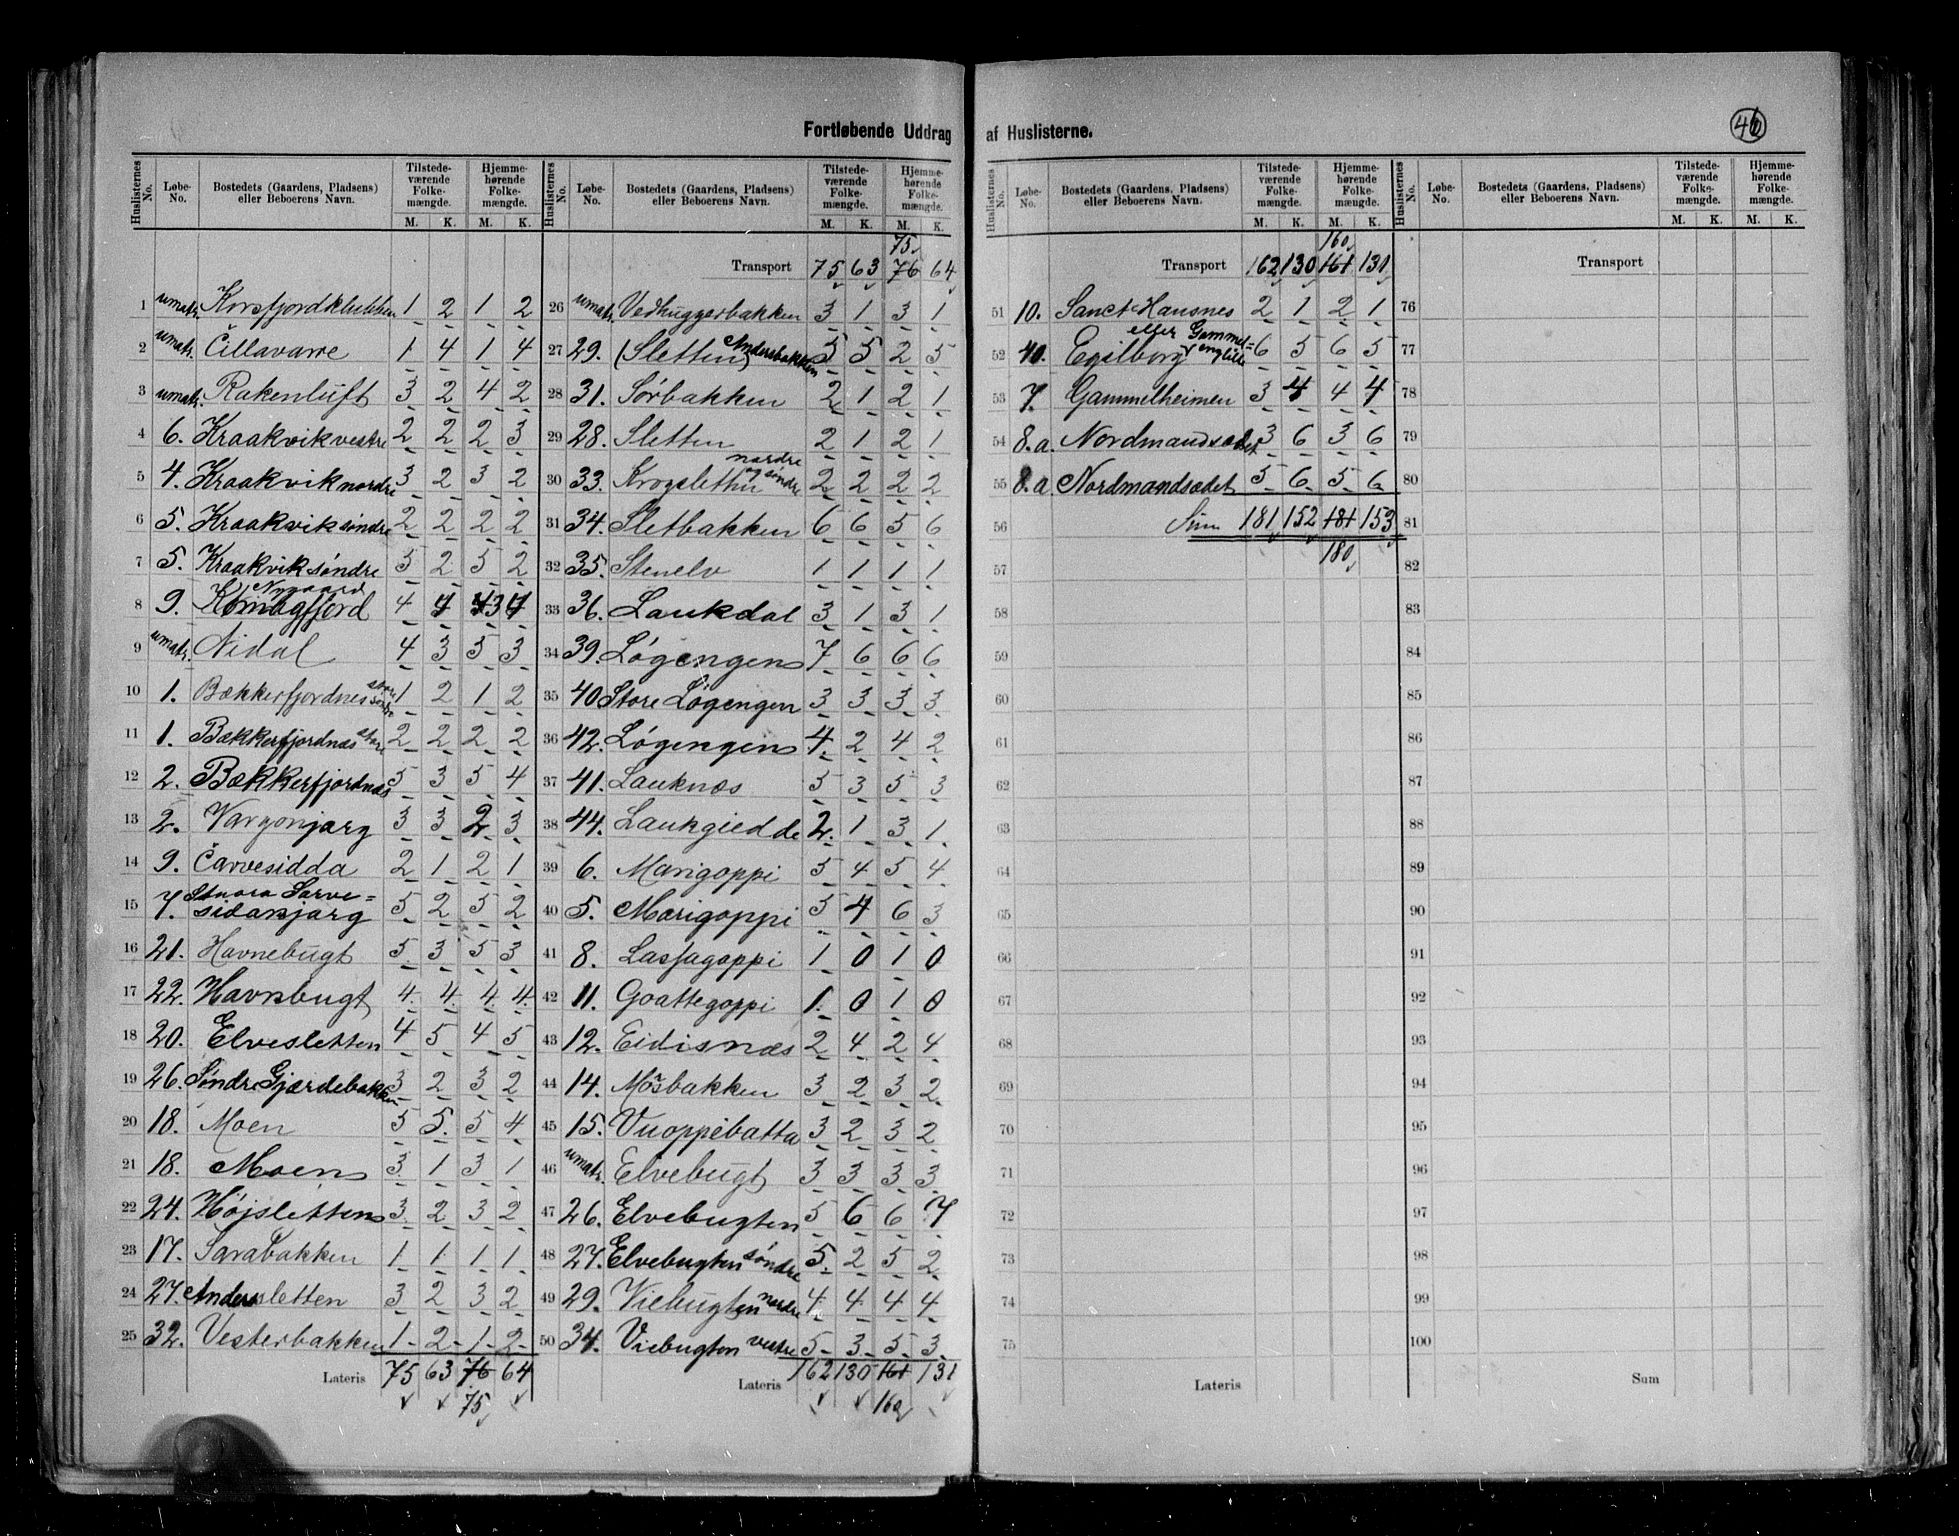 Fortløbende Uddrag af Huslisterne.
46
Huslisternes No. Løbe-No. Bostedets (Gaardens, Pladsens) eller Beboerens Navn. Tilstedeværende Folkemængde. M. K. Hjemmehørende Folkemængde. M. K.
1 umatr. Korsfjordklubben 1 2 1 2
2 umatr. Čillavarre 1 4 1 4
3 umatr. Rakenluft 3 2 4 2
4 6. Kraakvik vestre 2 2 2 3
5 4. Kraakvik nordre 3 2 3 2
6 5. Kraakvik søndre 2 2 2 2
7 5. Kraakvik søndre 5 2 5 2
Nygaard
8 9. Komagfjord 4 7 3 7
9 umatr. Nidal 4 3 5 3
10 1. Bækkerfjordnes store søndre 1 2 1 2
11 1. Bækkerfjordnæs store 2 2 2 2
12 2. Bækkerfjordnæs 5 3 5 4
13 2. Vargonjarg 3 3 2 3
14 9. Čarvesidda 2 1 2 1
Stuora Sarve=
15 7. sidanjarg 5 2 5 2
16 21. Havnebugt 5 3 5 3
17 22. Havnsbugt 4 4 4 4
18 20. Elvesletten 4 5 4 5
19 26. Søndre Gjærdebakken 3 2 3 2
20 18. Moen 5 5 5 4
21 18. Moen 3 1 3 1
22 24. Højsletten 3 2 3 2
23 17. Sarabakken 1 1 1 1
24 27. Andersletten 3 2 3 2
25 32. Vesterbakken 1 2 1 2
Lateris 75 63 76 64
75
Huslisternes No. Løbe-No. Bostedets (Gaardens, Pladsens) eller Beboerens Navn. Tilstedeværende Folkemængde. M. K. Hjemmehørende Folkemængde. M. K.
75
Transport 75 63 76 64
26 umatr. Vedhuggerbakken 3 1 3 1
27 29. (Sletten) Andersbakken 5 5 2 5
28 31. Sørbakken 2 1 2 1
29 28. Sletten 2 1 2 1
nordre
30 33. Krogsletten og søndre 2 2 2 2
31 34. Sletbakken 6 6 5 6
32 35. Stenelv 1 1 1 1
33 36. Laukdal 3 1 3 1
34 39. Løgengen 7 6 6 6
35 40 Store Løgengen 3 3 3 3
36 42. Løgengen 4 2 4 2
37 41. Lauknæs 5 3 5 3
38 44. Laukgiedde 2 1 3 1
39 6. Marigoppi 5 4 5 4
40 5. Marigoppi 5 4 6 3
41 8. Lassagoppi 1 0 1 0
42 11. Goattegoppi 1 0 1 0
43 12. Eidisnæs 2 4 2 4
44 14. Mosbakken 3 2 3 2
45 15. Vuoppebatta 3 2 3 2
46 umatr. Elvebugt 3 3 3 3
47 26. Elvebugten 5 6 6 7
48 27. Elvebugten søndre 5 2 5 2
49 29. Viebugten nordre 4 4 4 4
50 34. Viebugten vestre 5 3 5 3
Lateris 162 130 161 131
160
Huslisternes No. Løbe-No. Bostedets (Gaardens, Pladsens) eller Beboerens Navn. Tilstedeværende Folkemængde. M. K. Hjemmehørende Folkemængde. M. K.
160
Transport 162 130 161 131
51 10. Sanct Hansnes 2 1 2 1
eller Gammel=
52 40. Egilborg englille 6 5 6 5
53 7. Gammelheimen 3 4 4 4
54 8.a. Nordmandsædet 3 6 3 6
55 8.a Nordmandsædet 5 6 5 6
56 Sum 181 152 181 153
57 180
58
59
60
61
62
63
64
65
66
67
68
69
70
71
72
73
74
75
Lateris
Huslisternes No. Løbe-No. Bostedets (Gaardens, Pladsens) eller Beboerens Navn. Tilstedeværende Folkemængde. M. K. Hjemmehørende Folkemængde. M. K.
Transport
76
77
78
79
80
81
82
83
84
85
86
87
88
89
90
91
92
93
94
95
96
97
98
99
100
Sum